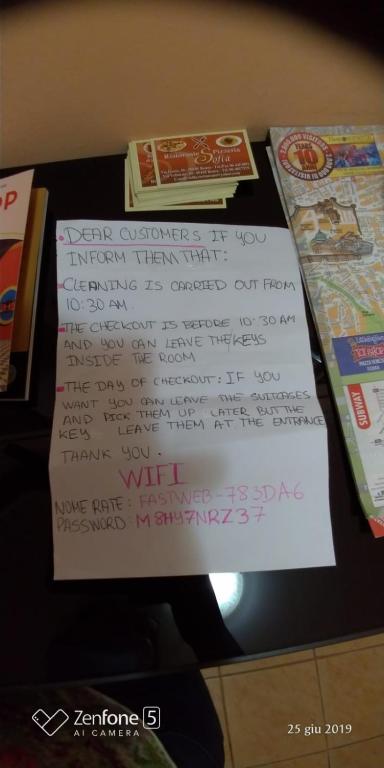 Ristorante Pizzeria
Sofia
DEAR CUSTOMERS IF YOU
INFORM THEM THAT:
CLEANING IS CARRIED OUT FROM
10:30 AM.
THE CHECKOUT IS BEFORE 10:30 AM
AND YOU CAN LEAVE THE KEYS
INSIDE THE ROOM
THE DAY OF CHECKOUT: IF YOU
WANT YOU CAN LEAVE THE SUITCASES
AND PICK THEM UP LATER BUT THE
KEY LEAVE THEM AT THE ENTRANCE
THANK YOU.
WIFI
NOME RATE: FASTWEB-783DA6
PASSWORD: M8HY7NRZ37
SUBWAY
Zenfone 5
AI CAMERA
25 giu 2019